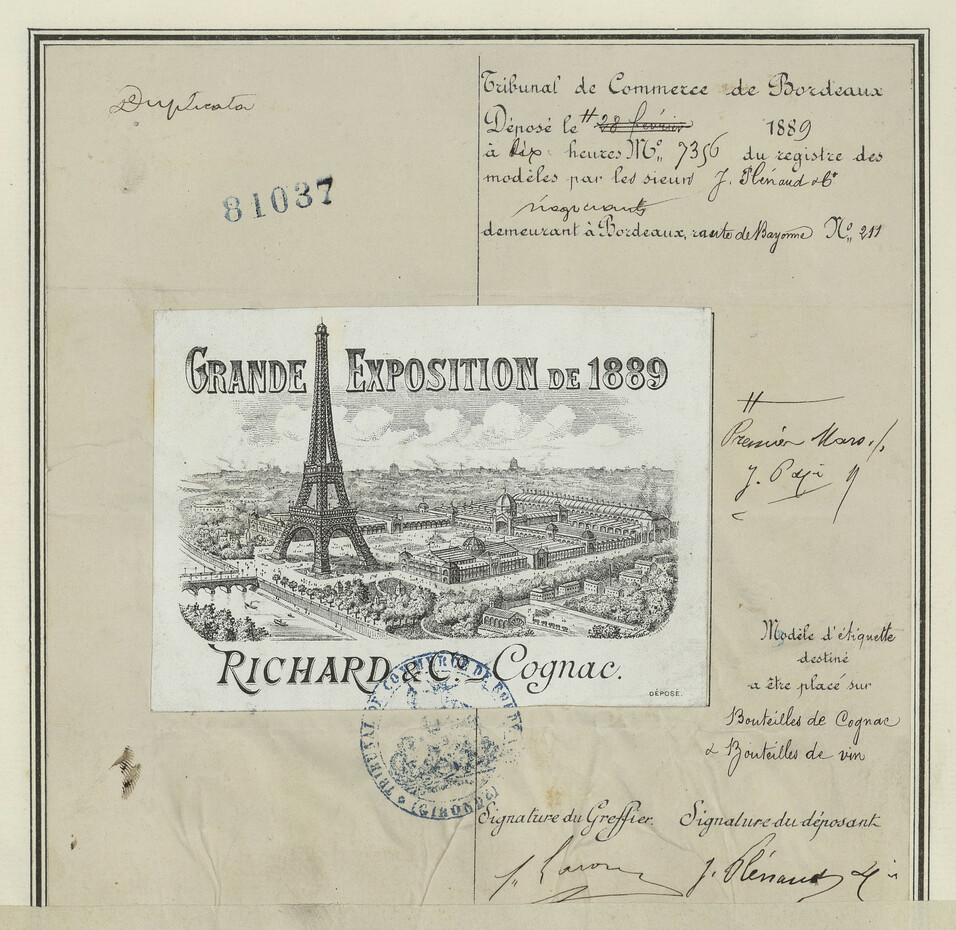 Duplicata
81037
Tribunal de Commerce de Bordeaux
Déposé le # 28 février 1889
à dix heures M. No. 7356 du registre des
modèles par les sieurs J. Plénaud & Ce
négociants
demeurant à Bordeaux, route de Bayonne No. 211
GRANDE EXPOSITION DE 1889
RICHARD & Co. Cognac.
DÉPOSÉ.
#
Premier Mars
J.
Modèle d'étiquette
destiné
a être placé sur
Bouteilles de Cognac
& Bouteilles de vin
TRIBUNAL DE COMMERCE DE BORDEAUX
(GIRONDE)
Signature du Greffier. Signature du déposant
J. Plénaud &